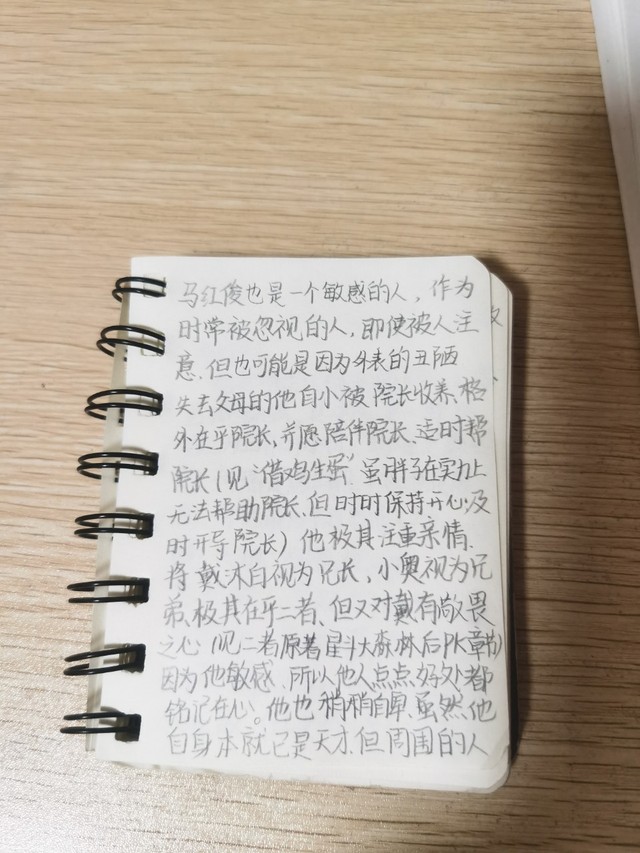 马红俊也是一个敏感的人，作为
时常被忽视的人，即使被人注
意，但也可能是因为外表的丑陋
失去父母的他自小被院长收养，格
外在乎院长，并愿陪伴院长，适时帮
院长（见“借鸡生蛋”虽胖子在实力上
无法帮助院长，但时时保持开心，及
时开导院长）他极其注重亲情，
将戴沐白视为兄长，小奥视为兄
弟，极其在乎二者，但又对戴有敬畏
之心（见二者原著星斗大森林后PK章节）
因为他敏感，所以他人点点好处都
铭记在心。他也稍稍自卑，虽然他
自身本就已是天才，但周围的人